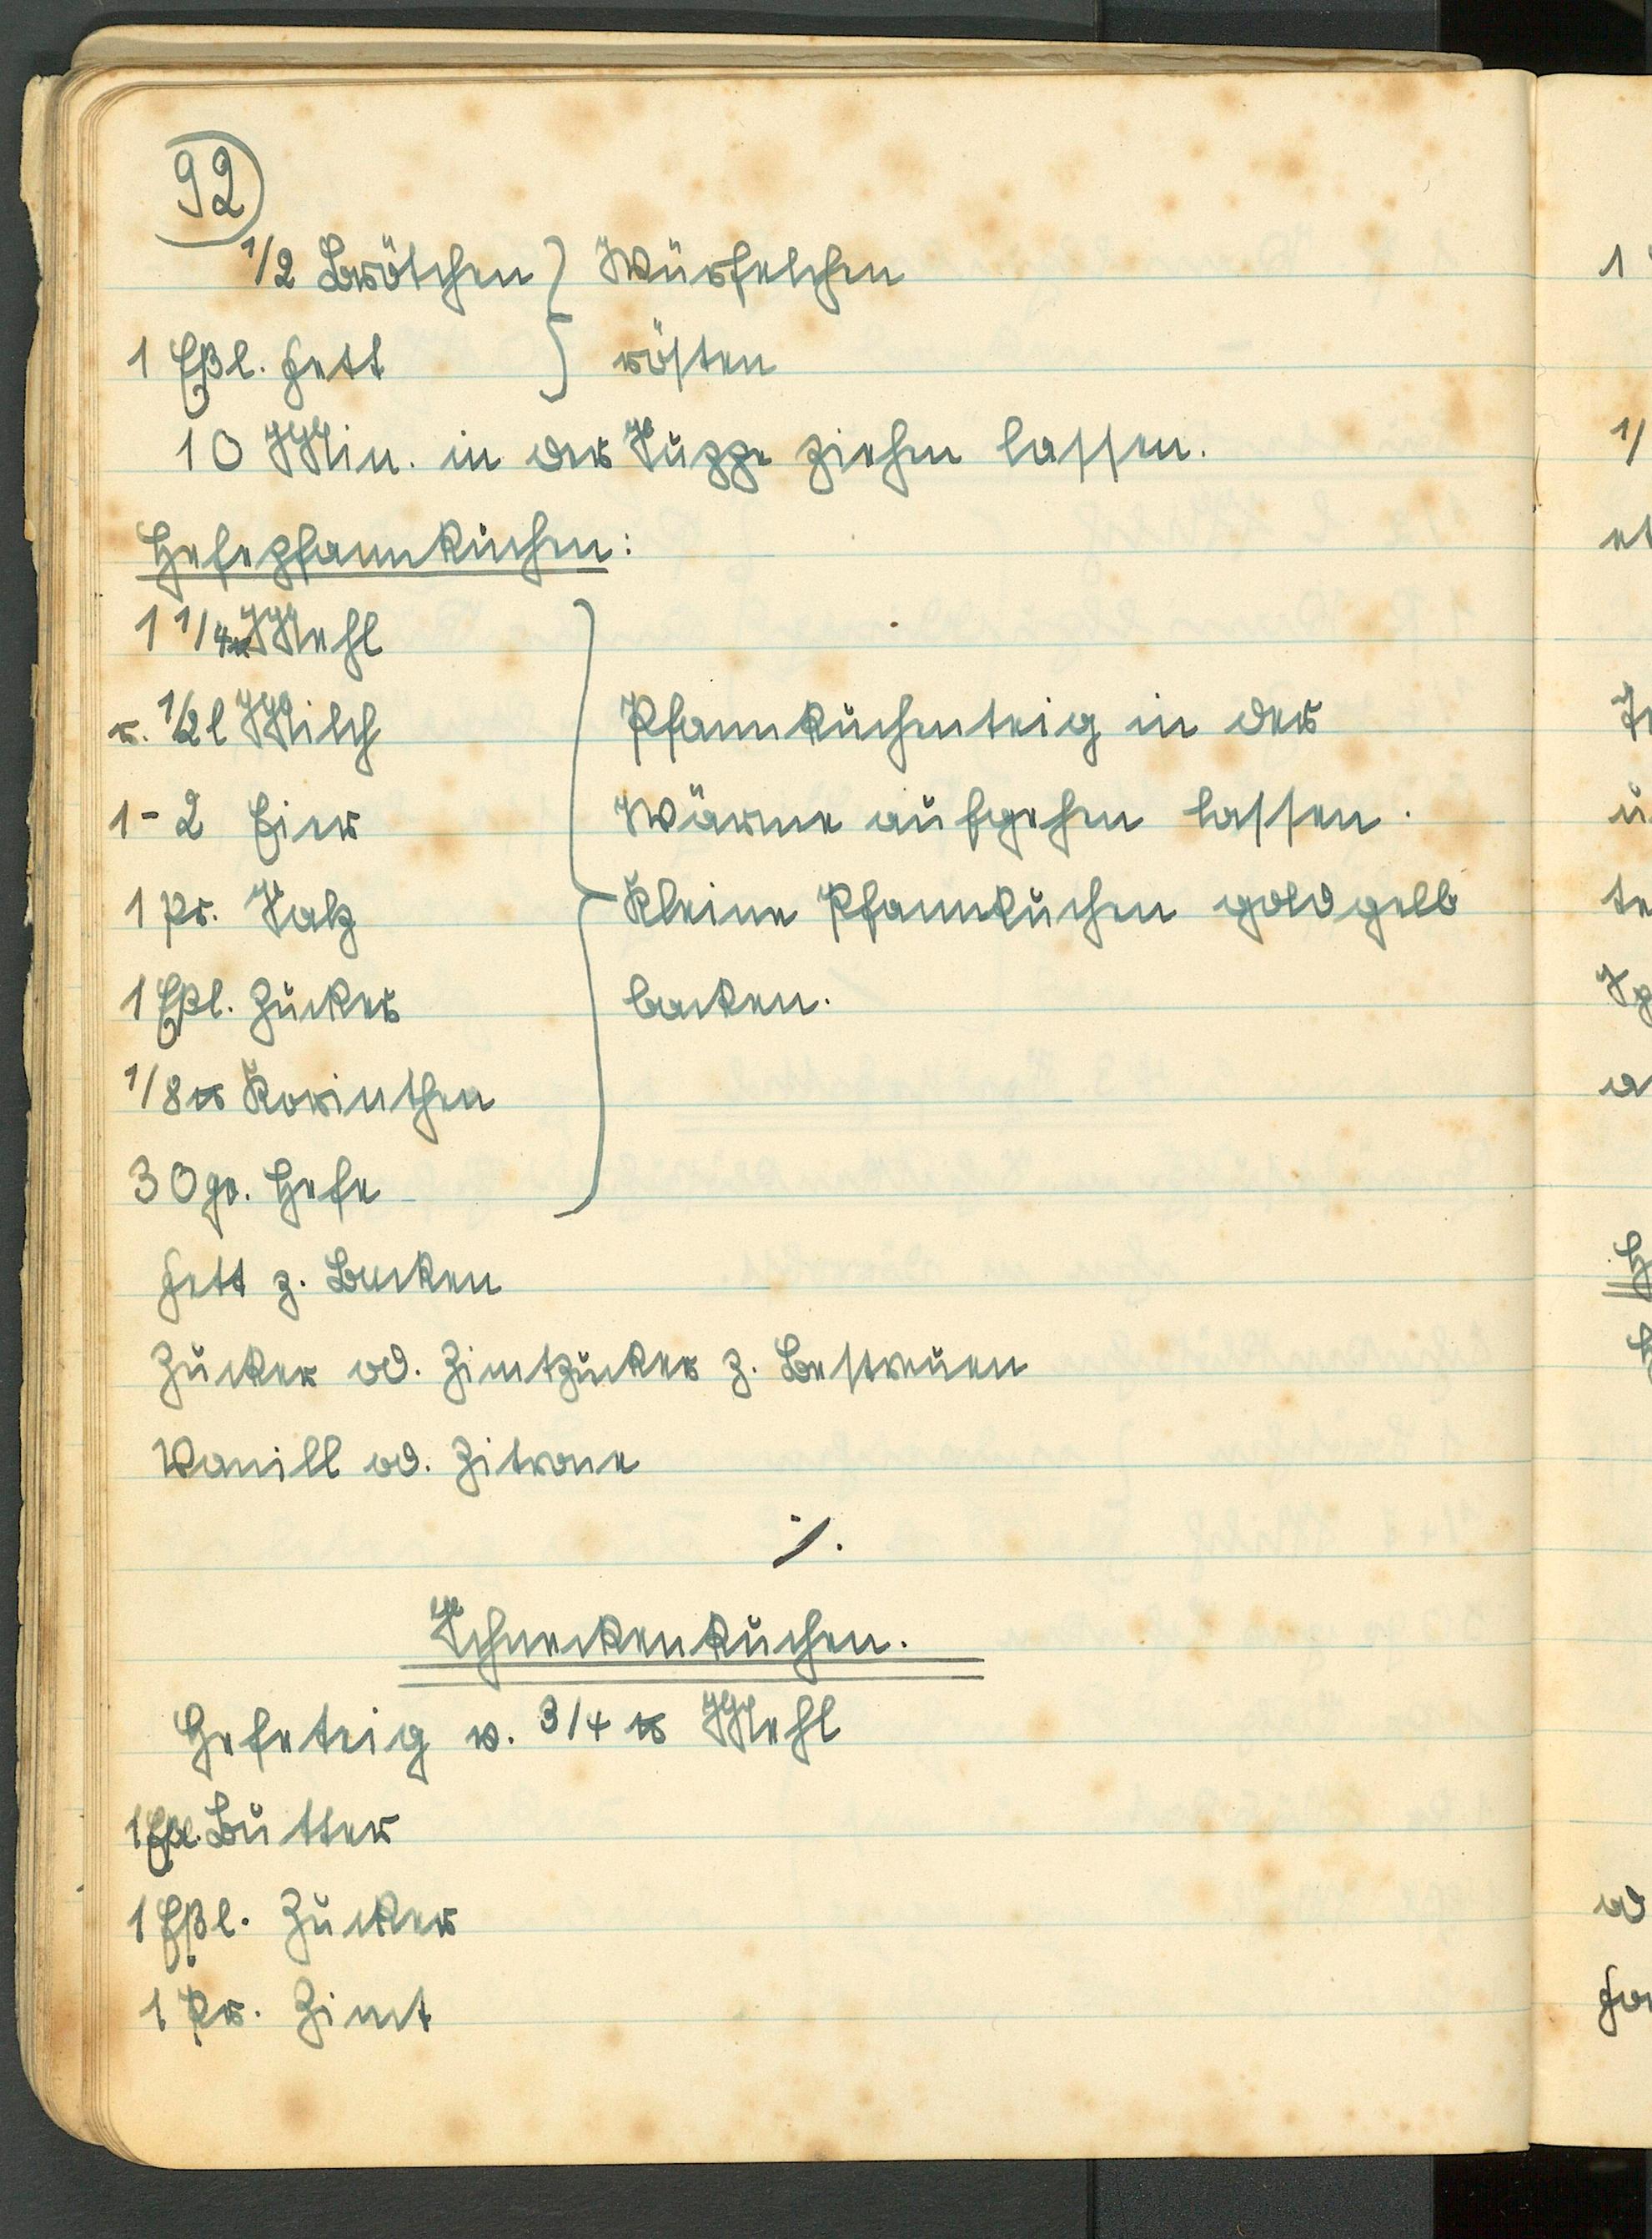 92
1/2 Brötchen } Würfelchen
1 Eßl. Fett } rösten
10 Min. in der Suppe ziehen lassen.
Hefepfannkuchen:
1 1/4 ℔ Mehl
r. 1/2 l Milch Pfannkuchenteig in der
1-2 Eier Wärme aufgehen lassen.
1 Pr. Salz Kleine Pfannkuchen goldgelb
1 Eßl. Zucker backen.
1/8 ℔ Korinthen
30 gr. Hefe
Fett z. Backen
Zucker od. Zimtzucker z. Bestreuen
Vanill od. Zitrone
./.
Schneckenkuchen.
Hefeteig v. 3/4 ℔ Mehl
1 Eßl. Butter
1 Eßl. Zucker
1 Pr. Zimt